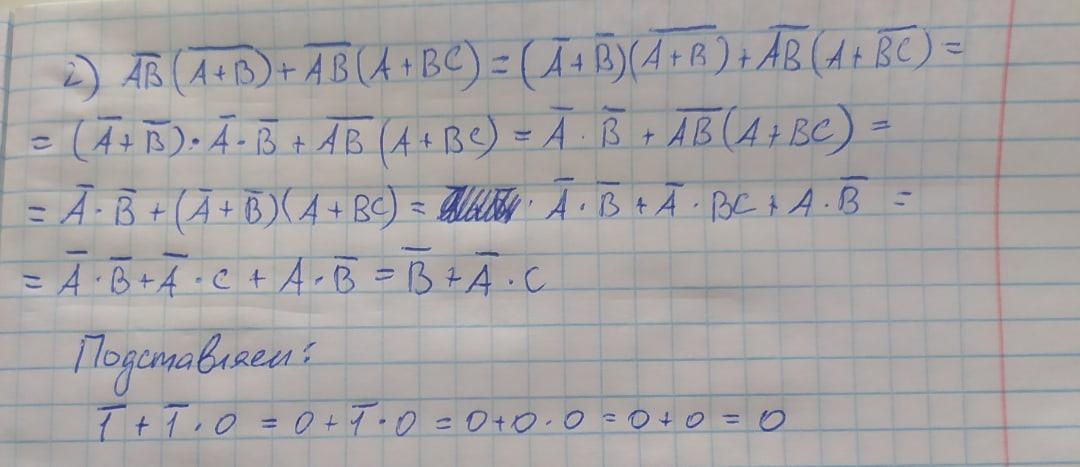 2) A̅B̅(A̅+̅B̅)+A̅B̅(A+BC)=(A̅+B̅)(A̅+̅B̅)+A̅B̅(A+B̅C̅)=
=(A̅+B̅)·A̅·B̅+A̅B̅(A+BC)=A̅·B̅+A̅B̅(A+BC)=
=A̅·B̅+(A̅+B̅)(A+BC)= · A̅·B̅+A̅·BC+A·B̅ =
=A̅·B̅+A̅·C+A·B̅=B̅+A̅·C
Подставляем:
1̅+1̅·0=0+1̅·0=0+0·0=0+0=0